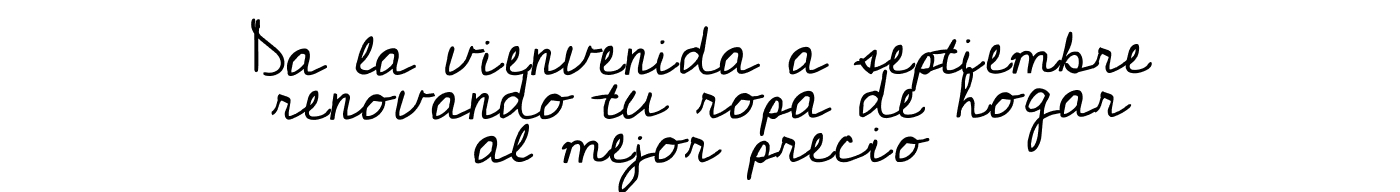 Da la vienvenida a septiembre
renovando tu ropa de hogar
al mejor precio